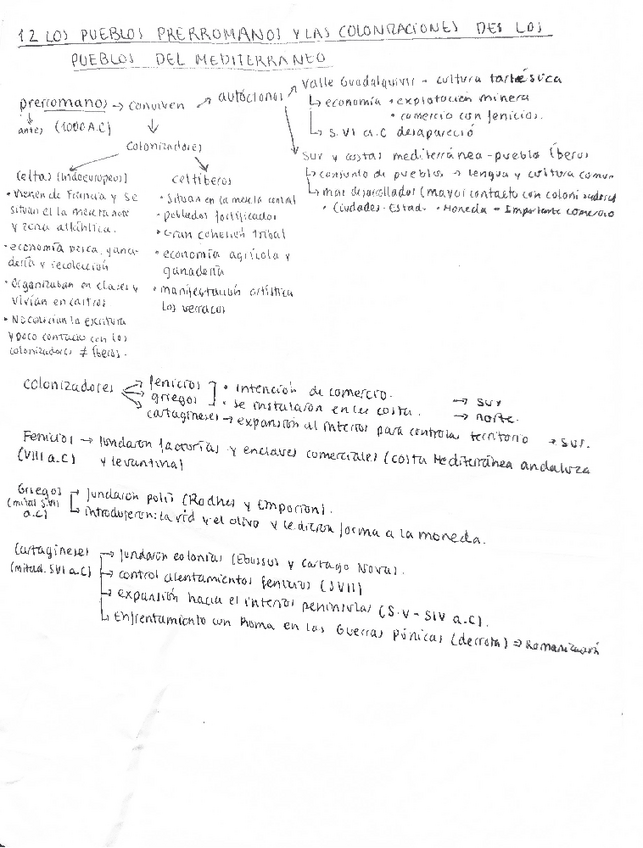 1.2 LOS PUEBLOS PRERROMANOS Y LAS COLONIZACIONES DES LOS
PUEBLOS DEL MEDITERRANEO
prerromanos → conviven → autóctonos → Valle Guadalquivir - cultura tartésica
↳ economía • explotación minera
• comercio con fenicios.
↳ S.VI a.C desapareció
antes (1000 A.C)
Colonizadores
Sur y costas mediterránea - pueblo íberos
↳ conjunto de pueblos → lengua y cultura comun
↳ mas desarrollados (mayor contacto con colonizadores)
• Ciudades-Estad. • Moneda = Importante comercio
Celtas (indoeuropeos)
• Vienen de Francia y se
situan el la meseta norte
y zona atlántica.
- economía basica, gana-
dería y recolección
• Organizaban en clases y
vivían en castros
• No conocian la escritura
y poco contacto con los
colonizadores ≠ íberos.
Celtíberos
• Situan en la meseta central
• poblados fortificados
• Gran cohesión tribal
• economía agrícola y
ganadería
• manifestación artística
los verracos
Colonizadores → fenicios
→ griegos
• intención de comercio.
• se instalaron en las costa.
→ sur
→ norte.
cartagineses → expansión al interior para controlar territorio → sur.
Fenicios → fundaron factorías y enclaves comerciales (costa Mediterránea andaluza
(VIII a.C) y levantina)
Griegos
(mitad S.VII
a.C)
fundaron polis (Rodhes y Emporion).
introdujeron: la vid y el olivo y le dieron forma a la moneda.
Cartagineses
(mitad. SVI a.C)
→ fundaron colonias (Ebussus y Cartago Nova).
→ control asentamientos fenicios (SVIII)
→ expansión hacia el interior peninsular (S.V - SIV a.C).
↳ Enfrentamiento con Roma en las Guerras Púnicas (derrota) ⇒ Romanización